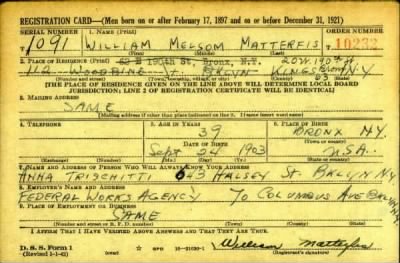 REGISTRATION CARD—(Men born on or after February 17, 1897 and on or before December 31, 1921)
SERIAL NUMBER 1. NAME (Print) ORDER NUMBER
1091 WILLIAM MELSOM MATTERFIS 10232
2. PLACE OF RESIDENCE (Print) 190th St. Bronx, N.Y. 20 W. 190th St
112 WOODBINE BKLYN KINGS N.Y.
(Number and street) (Town, township, village, or city) (County) (State)
[THE PLACE OF RESIDENCE GIVEN ON THE LINE ABOVE WILL DETERMINE LOCAL BOARD
JURISDICTION; LINE 2 OF REGISTRATION CERTIFICATE WILL BE IDENTICAL]
3. MAILING ADDRESS
SAME
[Mailing address if other than place indicated on line 2. If same insert word same]
4. TELEPHONE 5. AGE IN YEARS 6. PLACE OF BIRTH
39 BRONX N.Y.
DATE OF BIRTH (Town or county)
Sept 24 1903 U.S.A.
(Exchange) (Number) (Mo.) (Day) (Yr.) (State or country)
7. NAME AND ADDRESS OF PERSON WHO WILL ALWAYS KNOW YOUR ADDRESS
ANNA TRISCHITTI 643 HALSEY St. BKLYN N.Y.
8. EMPLOYER'S NAME AND ADDRESS
FEDERAL WORKS AGENCY 70 COLUMBUS AVE
9. PLACE OF EMPLOYMENT OR BUSINESS
SAME
(Number and street or R. F. D. number) (Town) (County) (State)
I AFFIRM THAT I HAVE VERIFIED ABOVE ANSWERS AND THAT THEY ARE TRUE.
D. S. S. Form 1 GPO 16—21630-1 William Matterfis
(Revised 1-1-42) (Registrant's signature)